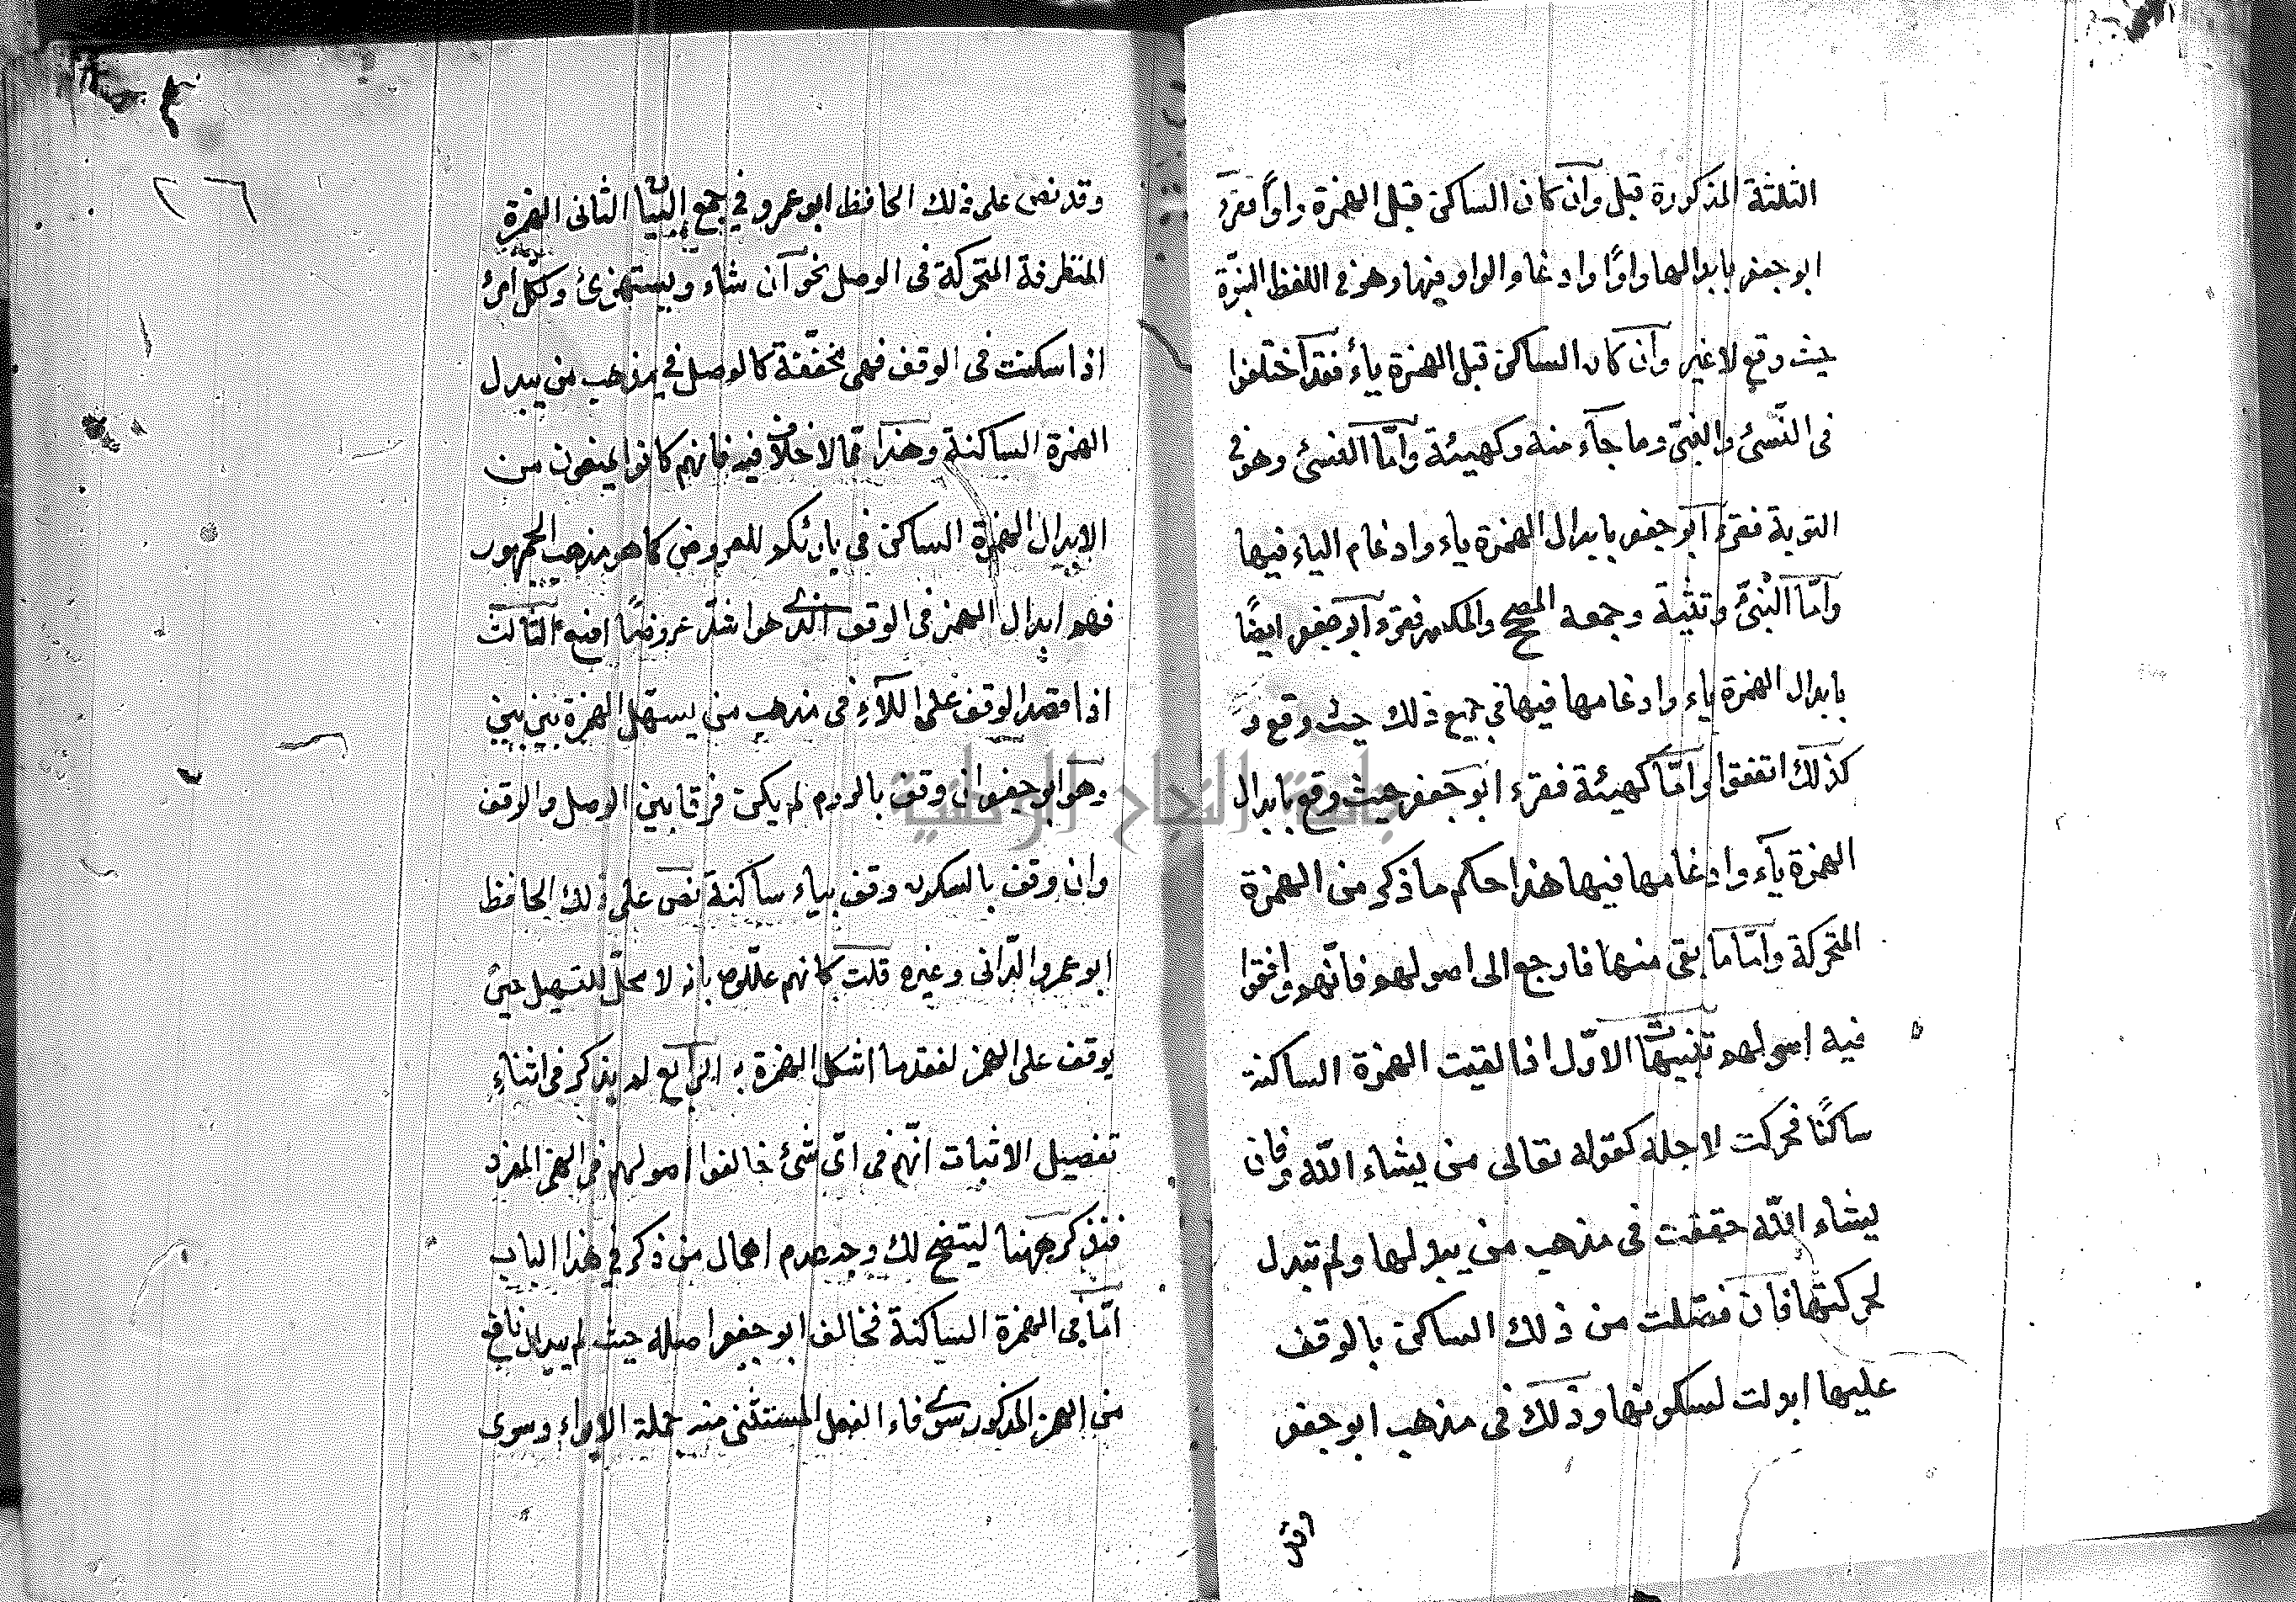 الثلثة المذكورة قبل وان كان الساكن قبل الهمزة واوًا فقرء
ابو جعفر بابدالها واوًا وادغا والواو فيها وهو في اللفظ البتّة
حيث وقع لا غير وان كان الساكن قبل الهمزة ياءً فقد اختلفوا
فى النّسئ والنبىّ وما جآء منه وكهيئة وامّا النسئ وهو في
التوبة فقرء ابو جعفر بابدال الهمزة ياء وادغام الياء فيها
وامّا النّبىّ وتثنية وجمعه المصحح والمكسر فقرء ابو جعفر ايضًا
بابدال الهمزة ياء وادغامها فيها في جميع ذلك حيث وقع و
كذلك اتفقوا وامّا كهيئة فقرء ابو جعفر حيث وقع بابدال
الهمزة يآء وادغامها فيها هذا حكم ما ذكر من الهمزة
المتحركة وامّا ما بقى منها فارجع الى اصولهم فانّهم وافقوا
فيه اصولهم تنبيهات الاوّل اذا لقيت الهمزة الساكنة
ساكنًا فحركت لاجله كقوله تعالى من يشاء اللّه وفان
يشاء اللّه حققت فى مذهب من يبدلها ولم تبدل
لحركتها فان فصّلت من ذلك الساكن بالوقف
عليها ابدلت لسكونها وذلك فى مذهب ابو جعفر
وقد
وقد نص على ذلك الحافظ ابو عمرو في جمع البيان الثانى الهمزة
المتطرفة المتحركة فى الوصل نحو ان شاء ويستهزئ ولكل امرئ
اذا سكنت فى الوقف فهى مخفّفة كالوصل في مذهب من يبدل
الهمزة الساكنة وهذا ممّا لا خلاف فيه فانهم كانوا يمنعون من
الابدال الهمزة الساكن في بارئكم للعروض كما هو مذهب الجمهور
فهو ابدال الهمز فى الوقف الذى هو اشدّ عروضًا امنع الثالث
اذا قصد الوقف على اللآءِ فى مذهب من يسهّل الهمزة بين بين
وهو ابو جعفر ان وقف بالروم لم يكن فرقا بين الوصل والوقف
وان وقف بالسكون وقف بياء ساكنة نص على ذلك الحافظ
ابو عمرو الدّانى وغيره قلت كانهم علّلوه بانه لا محلّ للتسهيل حين
يوقف على الهمز لفقدها اشكل الهمزة به الرابع لم يذكر فى اثناءِ
تفصيل الاثبات انّهم فى اىّ شئ خالفوا اصولهم فى الهمز المفرد
فنذكر ههنا ليتضح لك وجه عدم اهمال من ذكر في هذا الباب
امّا في الهمزة الساكنة فخالف ابو جعفر اصله حيث لم يبدل نافع
من الهمز المذكور سوى فاء الفعل المستثنى منه جملة الايواء وسوى
٢٦
جامعة النجاح الوطنية